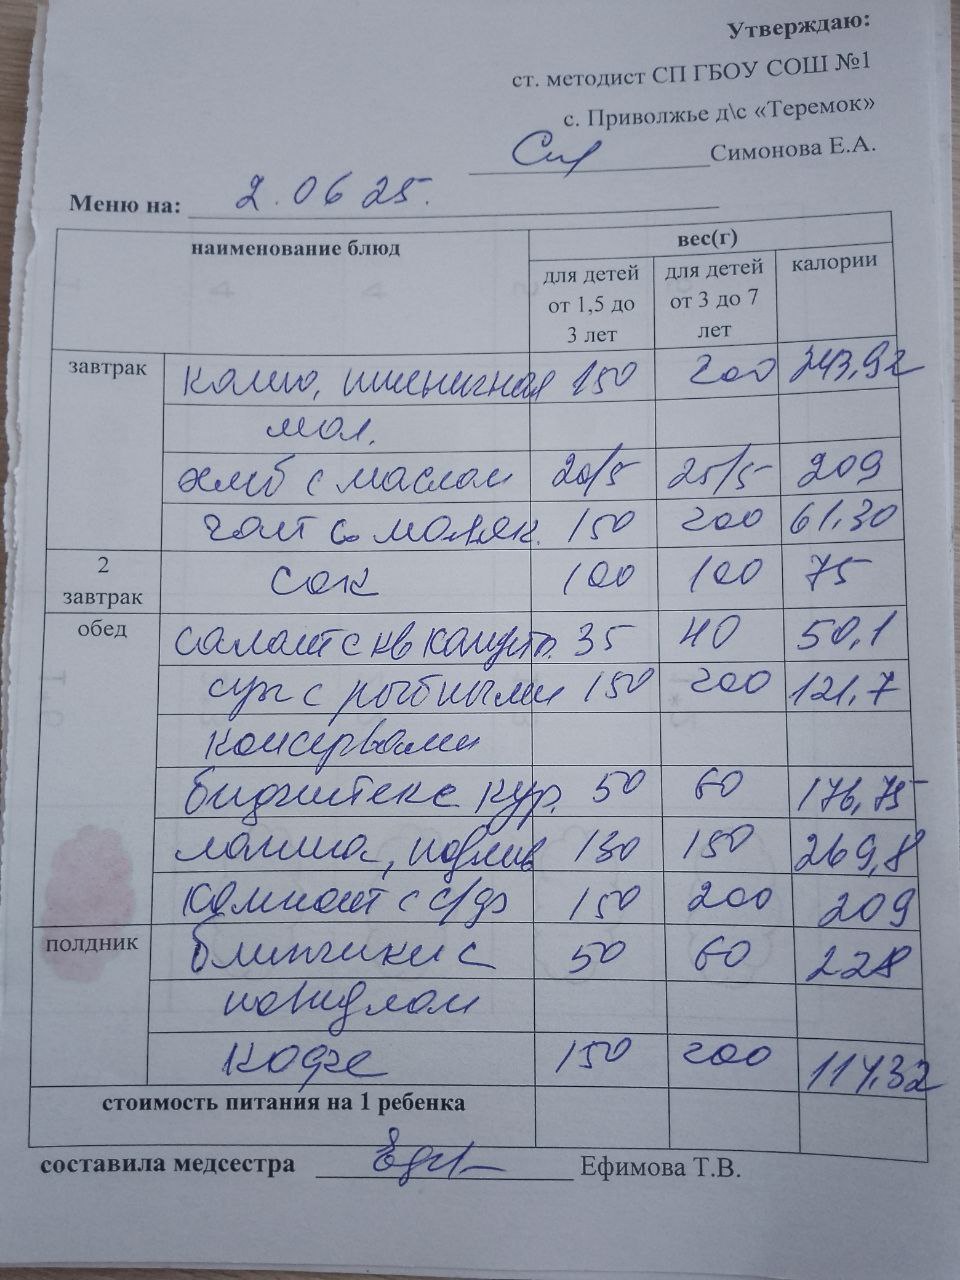 Утверждаю:
ст. методист СП ГБОУ СОШ №1
с. Приволжье д\с «Теремок»
Симонова Е.А.
Меню на: 2.06 25.
наименование блюд вес(г)
для детей от 1,5 до 3 лет для детей от 3 до 7 лет калории
завтрак каша, пшеничная 150 200 243,92
мол.
хлеб с маслом 20/5 25/5 209
чай с молок. 150 200 61,30
2 завтрак сок 100 100 75
обед салат с кв капуст. 35 40 50,1
суп с рыбными 150 200 121,7
консервами
бифштекс кур. 50 60 176,75
лапша, подлив 130 150 269,8
компот с с/ф 150 200 209
полдник блинчики с 50 60 228
повидлом
кофе 150 200 114,32
стоимость питания на 1 ребенка
составила медсестра Ефимова Т.В.